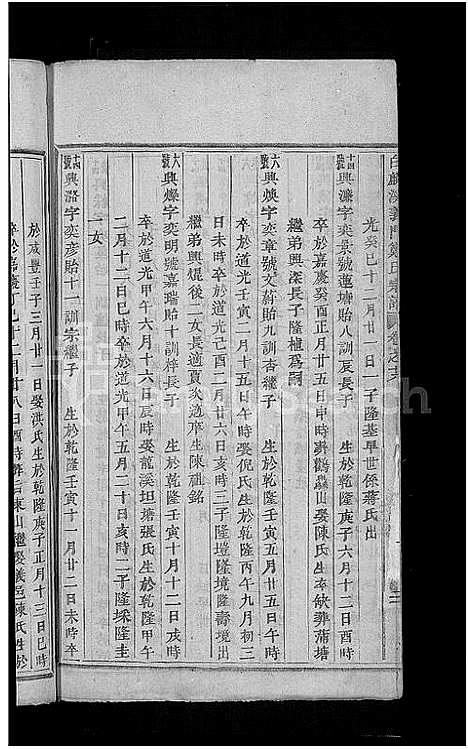 白麟溪義門鄭氏宗譜 卷之
光癸巳十二月廿一日一子隆基早世係蔣氏出
十四號 興濂字奕景號蓮塘貽八訓辰長子 生於乾隆庚子六月十二日酉時
卒於嘉慶癸酉正月廿五日申時葬鶴山娶陳氏生卒缺葬蒲塘
繼弟興深長子隆植爲嗣
六號 興煥字奕章號文薪貽九訓杏繼子 生於乾隆壬寅五月廿五日午時
卒於道光甲午二月十五日午時娶倪氏生於乾隆丙午九月初三
日未時卒於道光己酉二月廿六日亥時三子隆壇隆境隆壽境出
繼弟興焜後二女長適賈次適卒生陳祖銘
六號 興爍字奕明號嘉瑞貽十訓梓長子 生於乾隆壬寅十月十二日戌時
卒於道光甲午六月十六日辰時娶龍溪坦塘張氏生於乾隆甲午
二月十二日巳時卒於道光甲午五月二十日亥時二子隆埰隆圭
一女
十四號 興洛字奕彦貽十一訓宗繼子 生於乾隆壬寅十一月廿二日未時卒
於咸豐壬子三月廿一日娶洪氏生於乾隆庚子正月十三日巳時
卒於嘉慶丁巳十二月十八日酉時葬后東山繼娶義邑陳氏生於